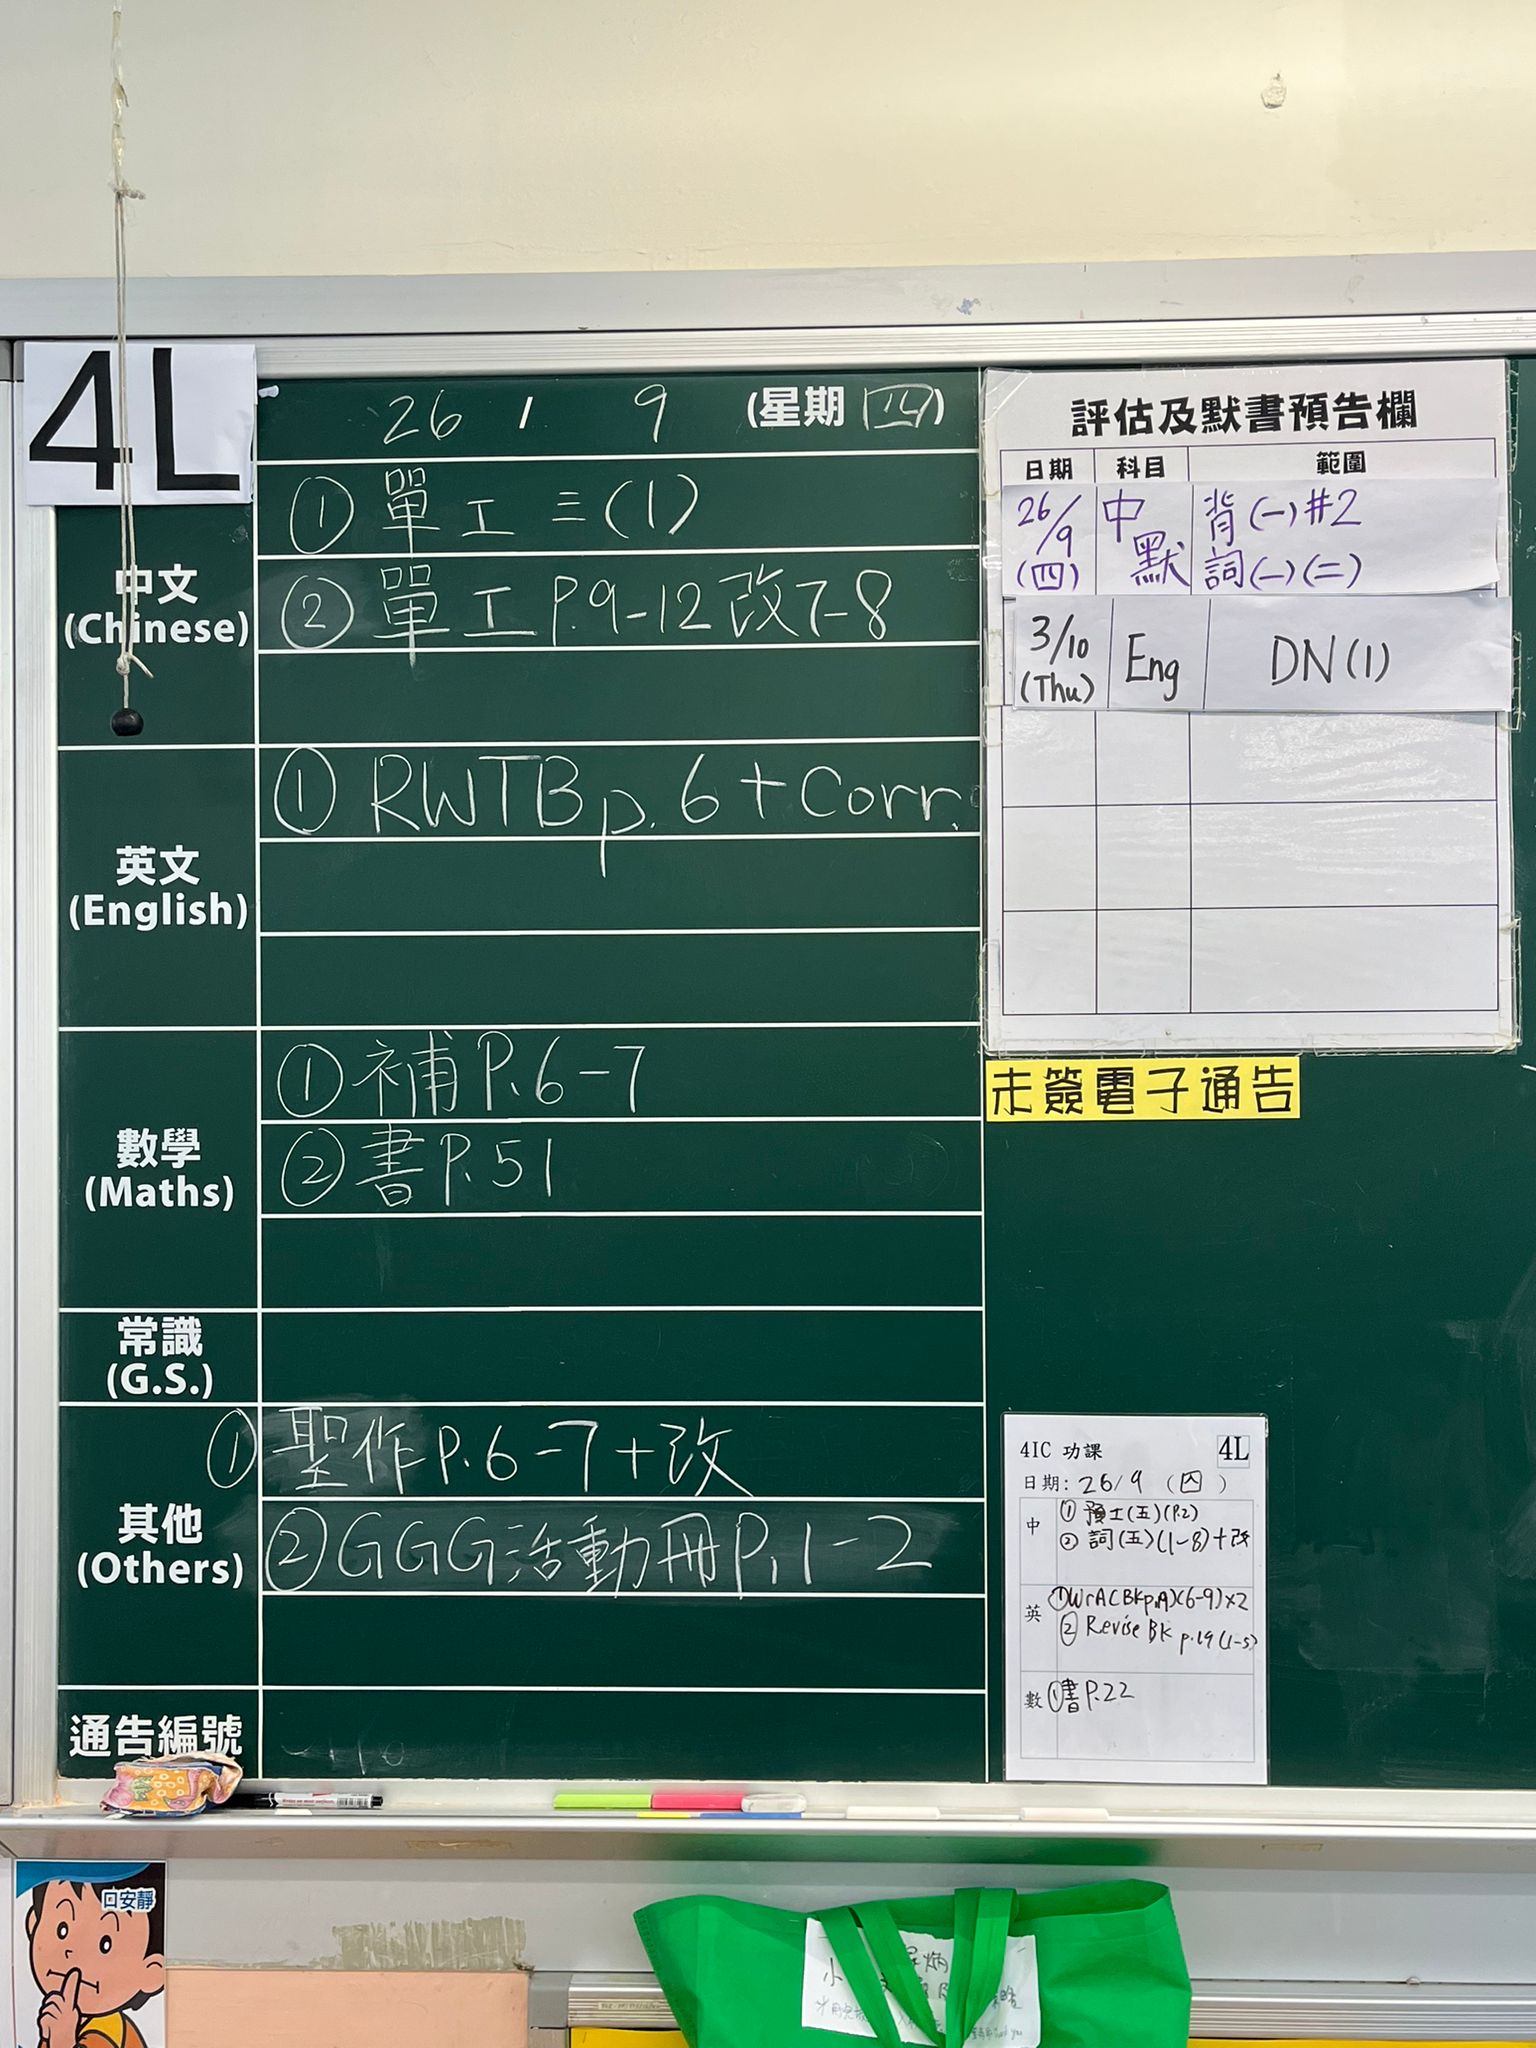 4L
26 / 9 (星期四)
中文
(Chinese)
① 單工 三(1)
② 單工 P.9-12 改7-8
英文
(English)
① RWTB p. 6 + Corr.
數學
(Maths)
① 補 P.6-7
② 書 P.51
常識
(G.S.)
其他
(Others)
① 聖作 P.6-7+改
② GGG活動冊 P.1-2
通告編號
評估及默書預告欄
日期 科目 範圍
26/9 (四) 中默 背(一)#2 詞(一)(二)
3/10 (Thu) Eng DN(1)
未簽電子通告
4IC 功課 4L
日期: 26/9 (四)
中 ① 預工(五)(P.2)
② 詞(五)(1-8)+改
英 ① WrA(BKp.A)(6-9)×2
② Revise BK p.19(1-5)
數 ① 書P.22
口安靜